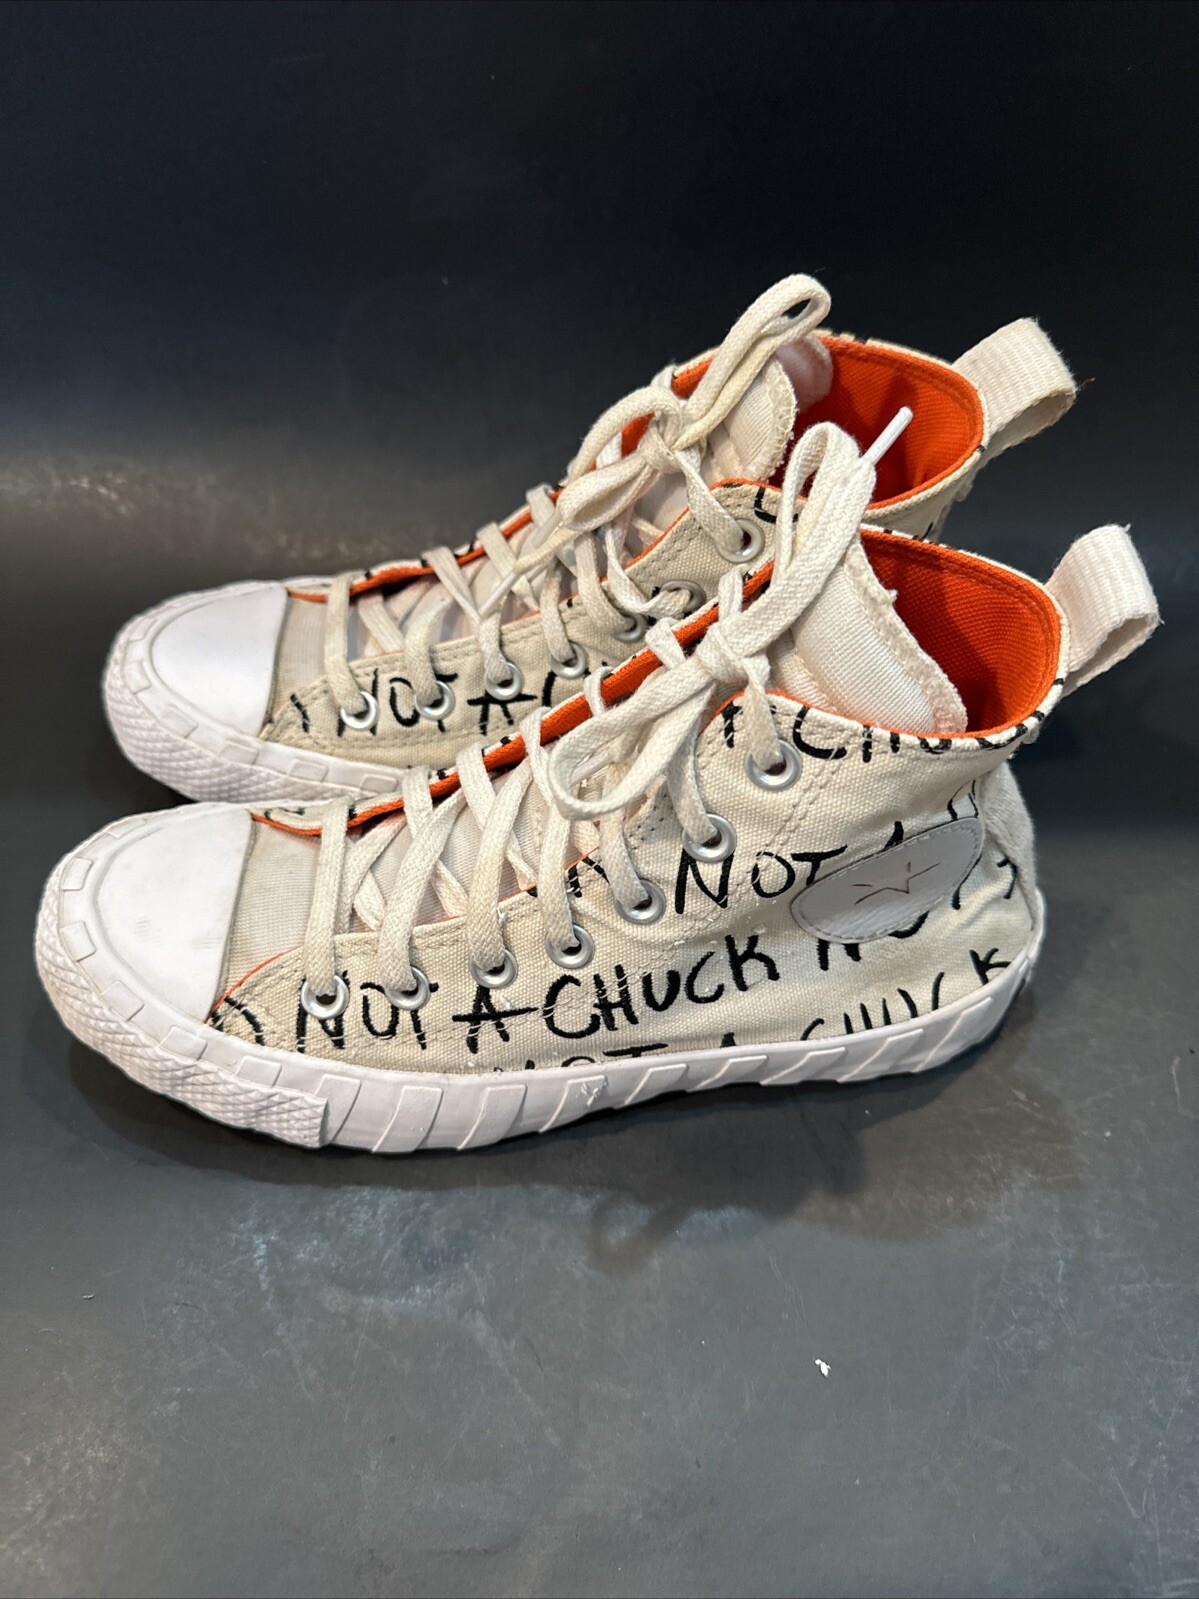 NOT A
A CHUCK
NOT A
NOT A CHUCK
NOT A CHUCK